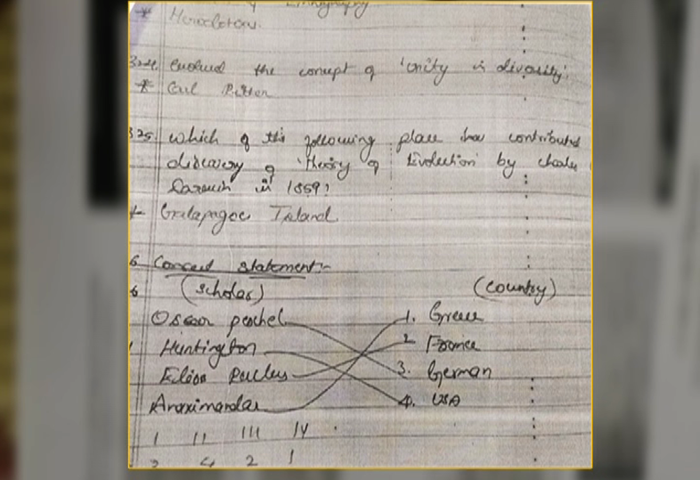 * Herodotous.
324. evolved the concept of 'unity in diversity'.
* Carl Ritter
325. which of the following place has contributed
discovery of 'theory of Evolution' by charles
Darwin in 1859?
* Galapagoc Island
6 Correct statement:-
6 (scholar) (country)
Oscar peshel 1. Greece
Huntington 2. France
3. German
Anaximandar 4. USA
I II III IV
3 4 2 1